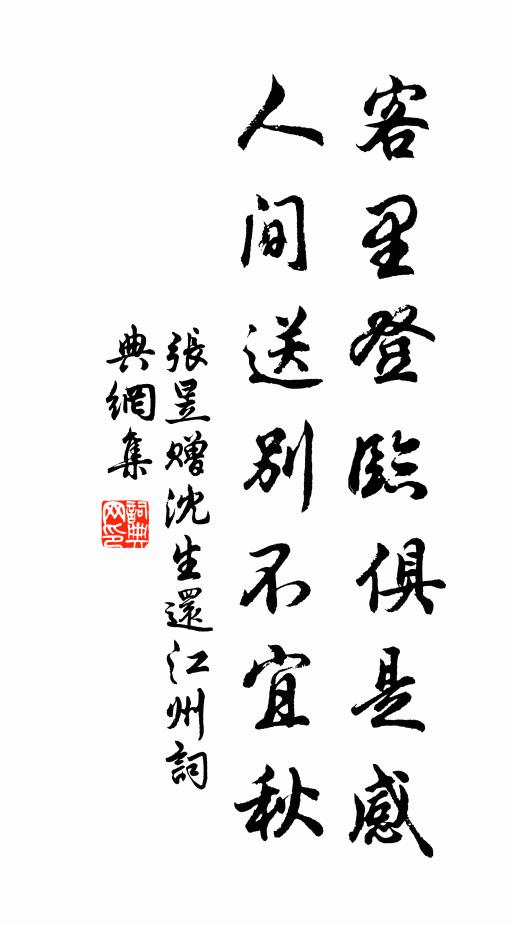 客里登臨俱是感
人间送别不宜秋
張昱贈沈生還江州詞
典網集
詞典
网印